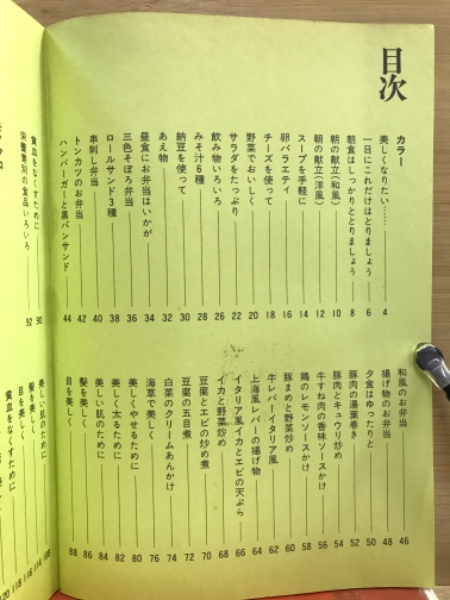 目次
カラー
美しくなりたい…… 4
一日にこれだけはとりましょう 6
朝食はしっかりととりましょう 8
朝の献立(和風) 10
朝の献立(洋風) 12
スープを手軽に 14
卵バラエティ 16
チーズを使って 18
野菜でおいしく 20
サラダをたっぷり 22
飲み物いろいろ 26
みそ汁6種 28
納豆を使って 30
あえ物 32
昼食にお弁当はいかが 34
三色そぼろ弁当 36
ロールサンド3種 38
串刺し弁当 40
トンカツのお弁当 42
ハンバーガーと黒パンサンド 44
和風のお弁当 46
揚げ物のお弁当 48
夕食はゆったりと 50
豚肉の湯葉巻き 52
豚肉とキュウリ炒め 54
牛すね肉の香味ソースかけ 56
鶏のレモンソースかけ 58
豚まめと野菜炒め 60
牛レバーイタリア風 62
上海風レバーの揚げ物 64
イタリア風イカとエビの天ぷら 66
イカと野菜炒め 68
豆腐とエビの炒め煮 70
豆腐の五目煮 72
白菜のクリームあんかけ 74
海草で美しく 76
美しくやせるために 80
美しく太るために 82
美しい肌のために 84
髪を美しく 86
目を美しく 88
貧血をなくすために 90
栄養素別の食品いろいろ 92
美しい肌のために 108
髪を美しく 114
目を美しく 116
貧血をなくすために 118
120